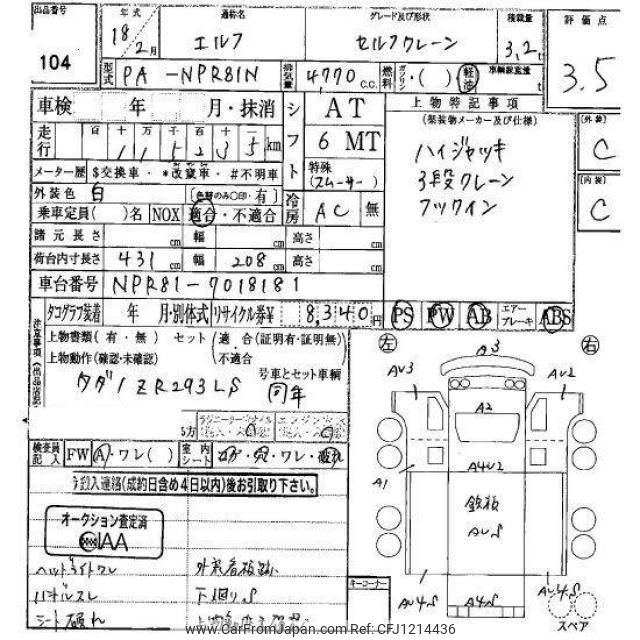 出品番号
104
年式
18/2月
通称名
エルフ
グレード及び形状
セルフクレーン
積載量
3,2t
評価点
3.5
型式 PA-NPR81N
排気量 4,770 c.c.
燃料 ガソリン・( )・軽油
車輌総重量 t
車検 年 月・抹消
シフト
AT
6 MT
特殊
(スムーサー)
上物特記事項
(架装物メーカー及び仕様)
ハイジャッキ
3段クレーン
フックイン
[外装]
C
[内装]
C
走行
百 十 万 千 百 十
1 1 5 2 3 5 km
メーター歴 $交換車・*改竄車・#不明車
外装色 白
(色替のみ○印・有)
冷房 AC 無
乗車定員( )名 NOX 適合・不適合
諸元長さ cm 幅 cm 高さ cm
荷台内寸長さ 431 cm 幅 208 cm 高さ cm
車台番号 NPR81-7018181
タコグラフ装着 年 月・別体式 リサイクル券¥ 8,340円
PS PW AB エアーブレーキ ABS
上物書類(有・無) セット(適合(証明有・証明無)
上物動作(確認・未確認) 不適合
号車とセット車輌
タダノ ZR293LS 同年
左
右
A3
AU3
AU2
A2
A4U2
A1
鉄板
AUS
AU4S
A4S
AU4S
スペア
検査員記入 FW A・ワレ( ) 室内シート
ワレ・破れ
搬入連絡(成約日含め4日以内)後お引取り下さい。
オークション査定済
IAA
ヘッドライトワレ
シート破れ
下廻りS
キーコーナー
www.CarFromJapan.com Ref:CFJ1214436